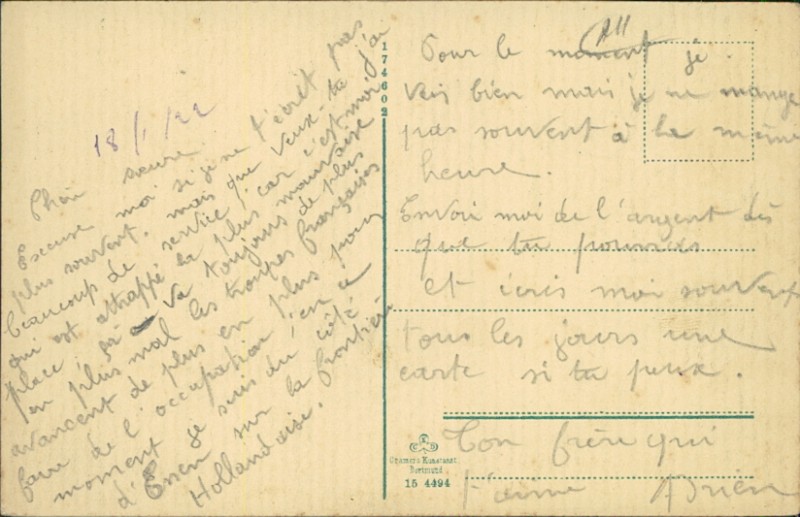 18/1/22
Chère sœure
Excuse moi si je ne t'écrit pas
plus souvent, mais que veux-tu j'ai
beaucoup de service, car c'est moi
qui est attrappé la plus mauvaise
place. Ça va toujours de plus
en plus mal les troupes françaises
avancent de plus en plus pour
faire de l'occupation j'en a
moment je suis du côté
d'Essen sur la frontière
Hollandaise.
174602
Pour le moment je
vais bien mais je ne mange
pas souvent à la même
heure.
Envoi moi de l'argent dès
que tu pourras
et écris moi souvent
tous les jours une
carte si tu peux.
Ton frère qui
t'aime Adrien
Cramers Kunstanst.
Dortmund
15 4494